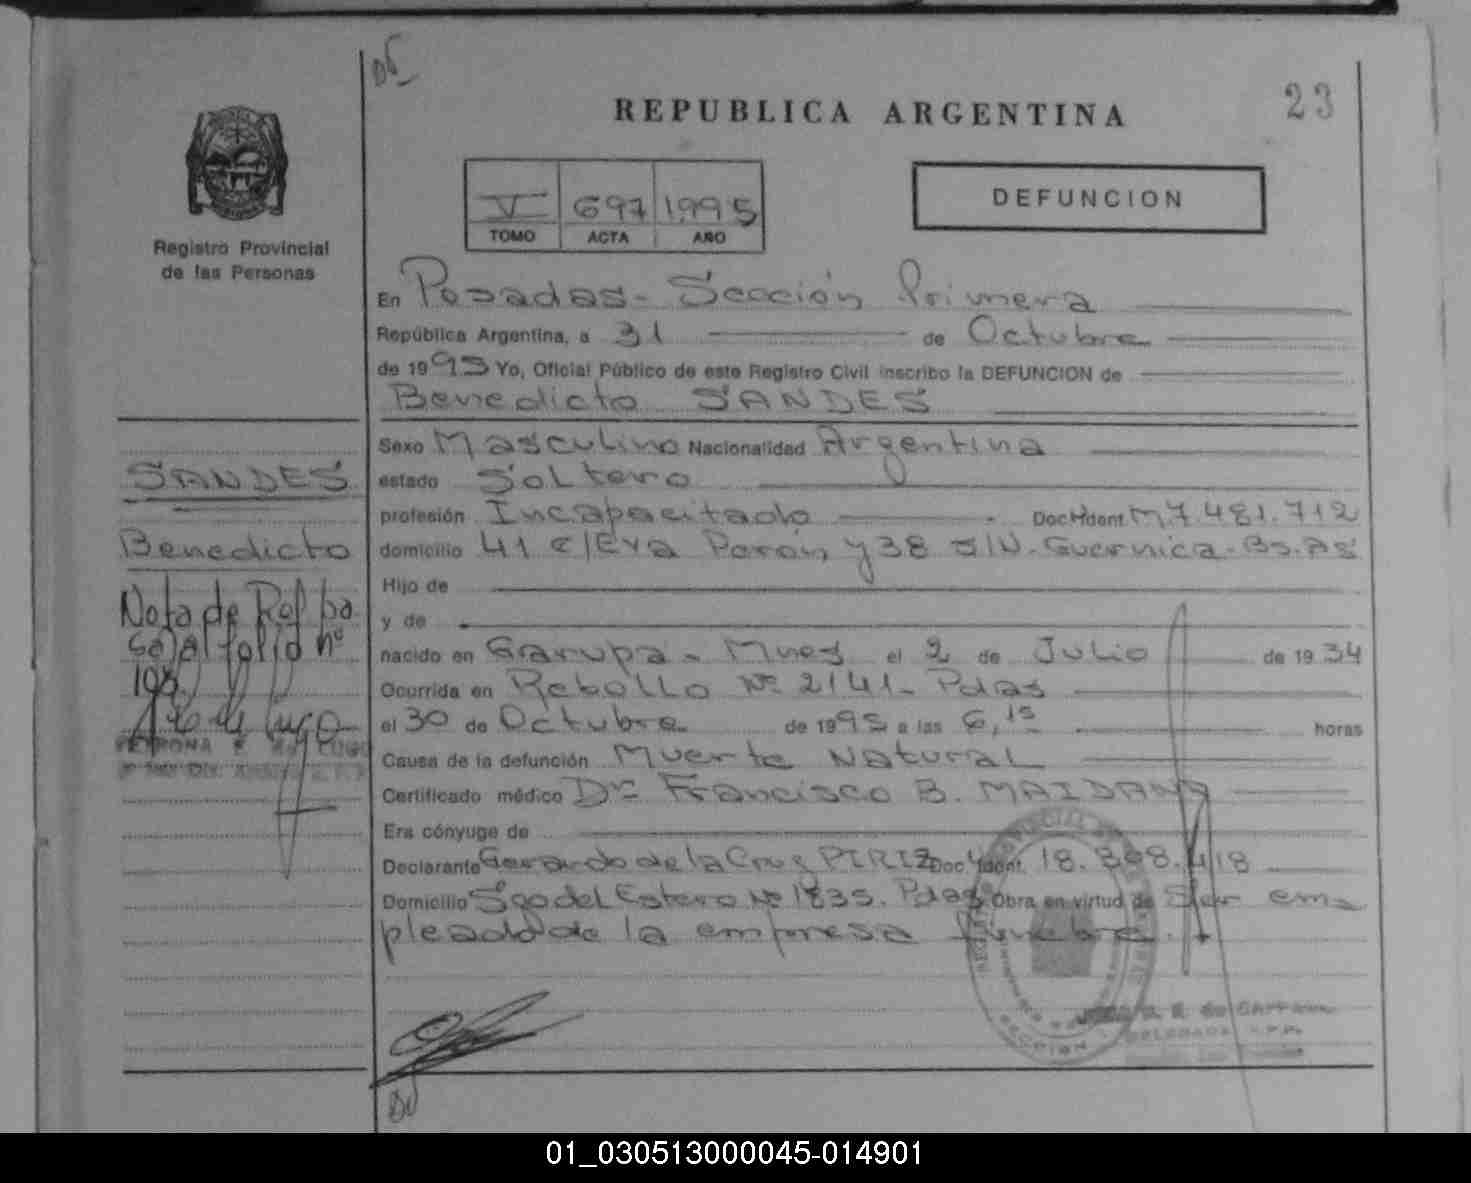 23
REPUBLICA ARGENTINA
Registro Provincial
de las Personas
DEFUNCION
V 697 1995
TOMO ACTA AÑO
En Posadas - Sección Primera
República Argentina, a 31 de Octubre
de 1995 Yo, Oficial Público de este Registro Civil inscribo la DEFUNCION de
Benedicto SANDES
SANDES
Benedicto
Nota de Ref pa
sa al folio nº
198.
Sexo Masculino Nacionalidad Argentina
estado Soltero
profesión Incapacitado Doc. Ident. M7.481.712
domicilio 41 e/Eva Perón y 38 s/N. Guernica - Bs.As
Hijo de
y de
nacido en Garupa - Mnes el 2 de Julio de 1934
Ocurrida en Rebollo Nº 2141 - Pdas
el 30 de Octubre de 1995 a las 6,15 horas
Causa de la defunción Muerte Natural
Certificado médico Dr Francisco B. MAIDANA
Era cónyuge de
Declarante Gerardo de la Cruz PIRIZ Doc. Ident. 18.308.418
Domicilio Sgo del Estero Nº 1835. Pdas Obra en virtud de Ser em-
pleado de la empresa funebre.
01_030513000045-014901